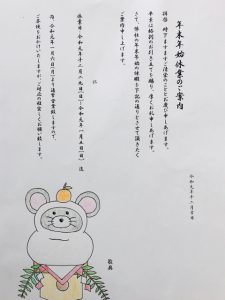 年末年始休業のご案内
令和元年十二月吉日
拝啓 時下ますますご清栄のこととお慶び申しあげます。
平素は格別のお引き立てを賜り、厚くお礼申しあげます。
さて、弊社の年末年始の休暇を下記の通りとさせて頂きたく
ご案内申しあげます。
記
休業日 令和元年十二月二八日(土)~令和元年一月五日(日) 迄
尚、令和元年一月六日(月)より通常営業致しますので、
ご不便をおかけいたしますが、ご対応の程宜しくお願い致します。
敬具